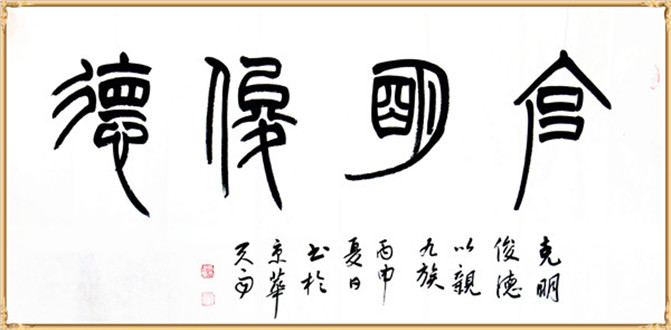 克明俊德
克明
俊德
以親
九族
丙申
夏日
书於
京華